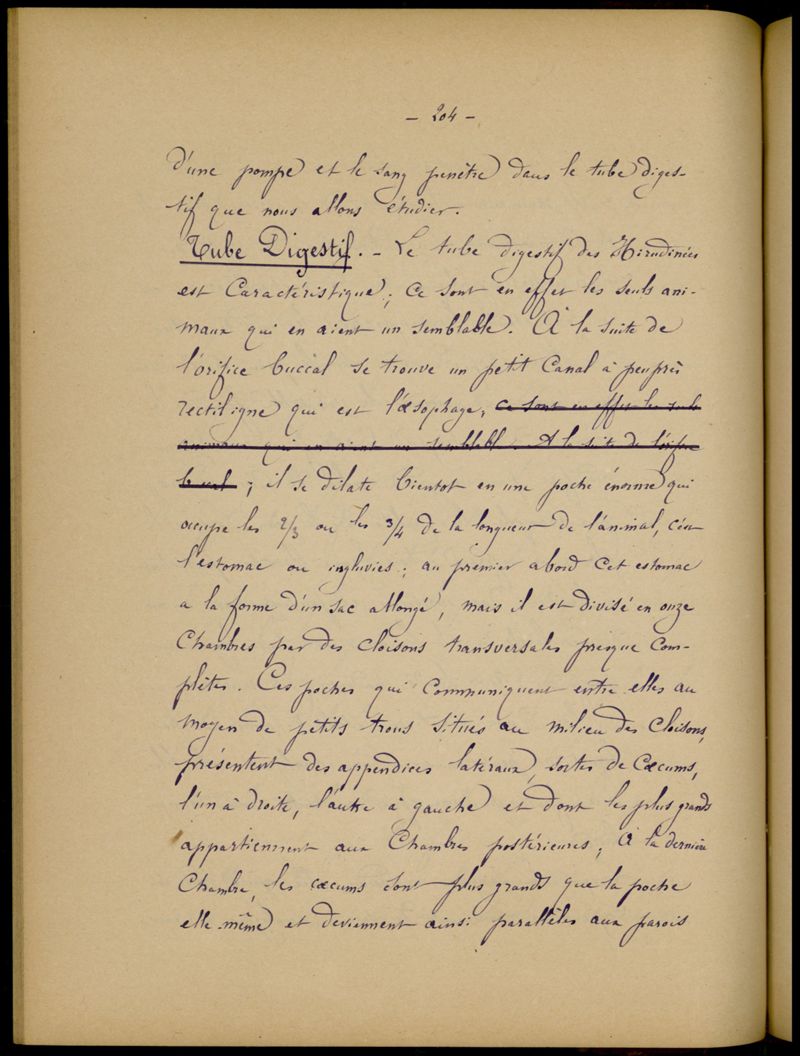 - 204 -
d'une pompe et le sang penètre dans le tube diges-
tif que nous allons étudier.
Tube Digestif. - Le tube digestif des Hirudinées
est Caractéristique; Ce sont en effet les seuls ani-
maux qui en aient un semblable. A la suite de
l'orifice buccal se trouve un petit Canal à peu près
rectiligne qui est l'œsophage, ce sont en effet les seuls
animaux qui en aient un semblable. A la suite de l'orifice
buccal ; il se dilate bientot en une poche énorme qui
occupe les 2/3 ou les 3/4 de la longueur de l'animal, c'est
l'estomac ou ingluvies; au premier abord cet estomac
a la forme d'un sac allongé, mais il est divisé en onze
Chambres par des cloisons transversales presque Com-
plètes. Ces poches qui Communiquent entre elles au
moyen de petits trous situés au milieu des cloisons,
présentent des appendices latéraux, sortes de Cæcums,
l'un à droite, l'autre à gauche et dont les plus grands
appartiennent aux Chambres postérieures; A la dernière
Chambre, les cæcums sont plus grands que la poche
elle-même et deviennent ainsi parallèles aux parois